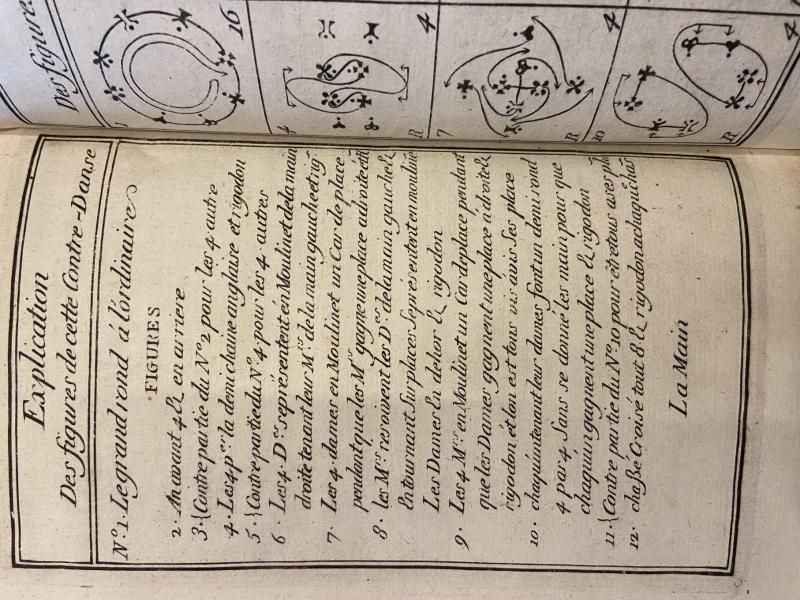 Explication
Des figures de cette Contre-Danse
N.º1. Le grand rond á l'ordinaire
FIGURES
2. En avant 4 & en arriere
3. Contre partie du Nº2 pour les 4 autre
4. Les 4 pers la demi chaine anglaise et rigodon
5. Contre partie du Nº 4 pour les 4 autres
6. Les 4. Des se présentent en Moulinet de la main
droite tenant leur Mrs de la main gauche et rig
7. Les 4 dames en Moulinet un Car de place
pendent que les Mrs gagne une place a droite &
8. les Mrs recoivent les Des de la main gauche &
En tournant Sur places Se présentent en mouline
Les Dames En dehor & rigodon
9. Les 4 Mrs en Moulinet un Car de place pendant
que les Dames gagnent une place a droite &
rigodon et lon est tous vis avis. Ses place
10. chaqu'un tenant leur dames font un demi rond
4 par 4 Sans se donné les main pour que
chaqu'un gagnent une place & rigodon
11. Contre partie du N.º 10 pour être tous a ses pla
12. chaßé Croisé tout 8. & rigodon a chaqu' chas
La Main
Des figures
16
4
4
R
7
4
R
10
4
R